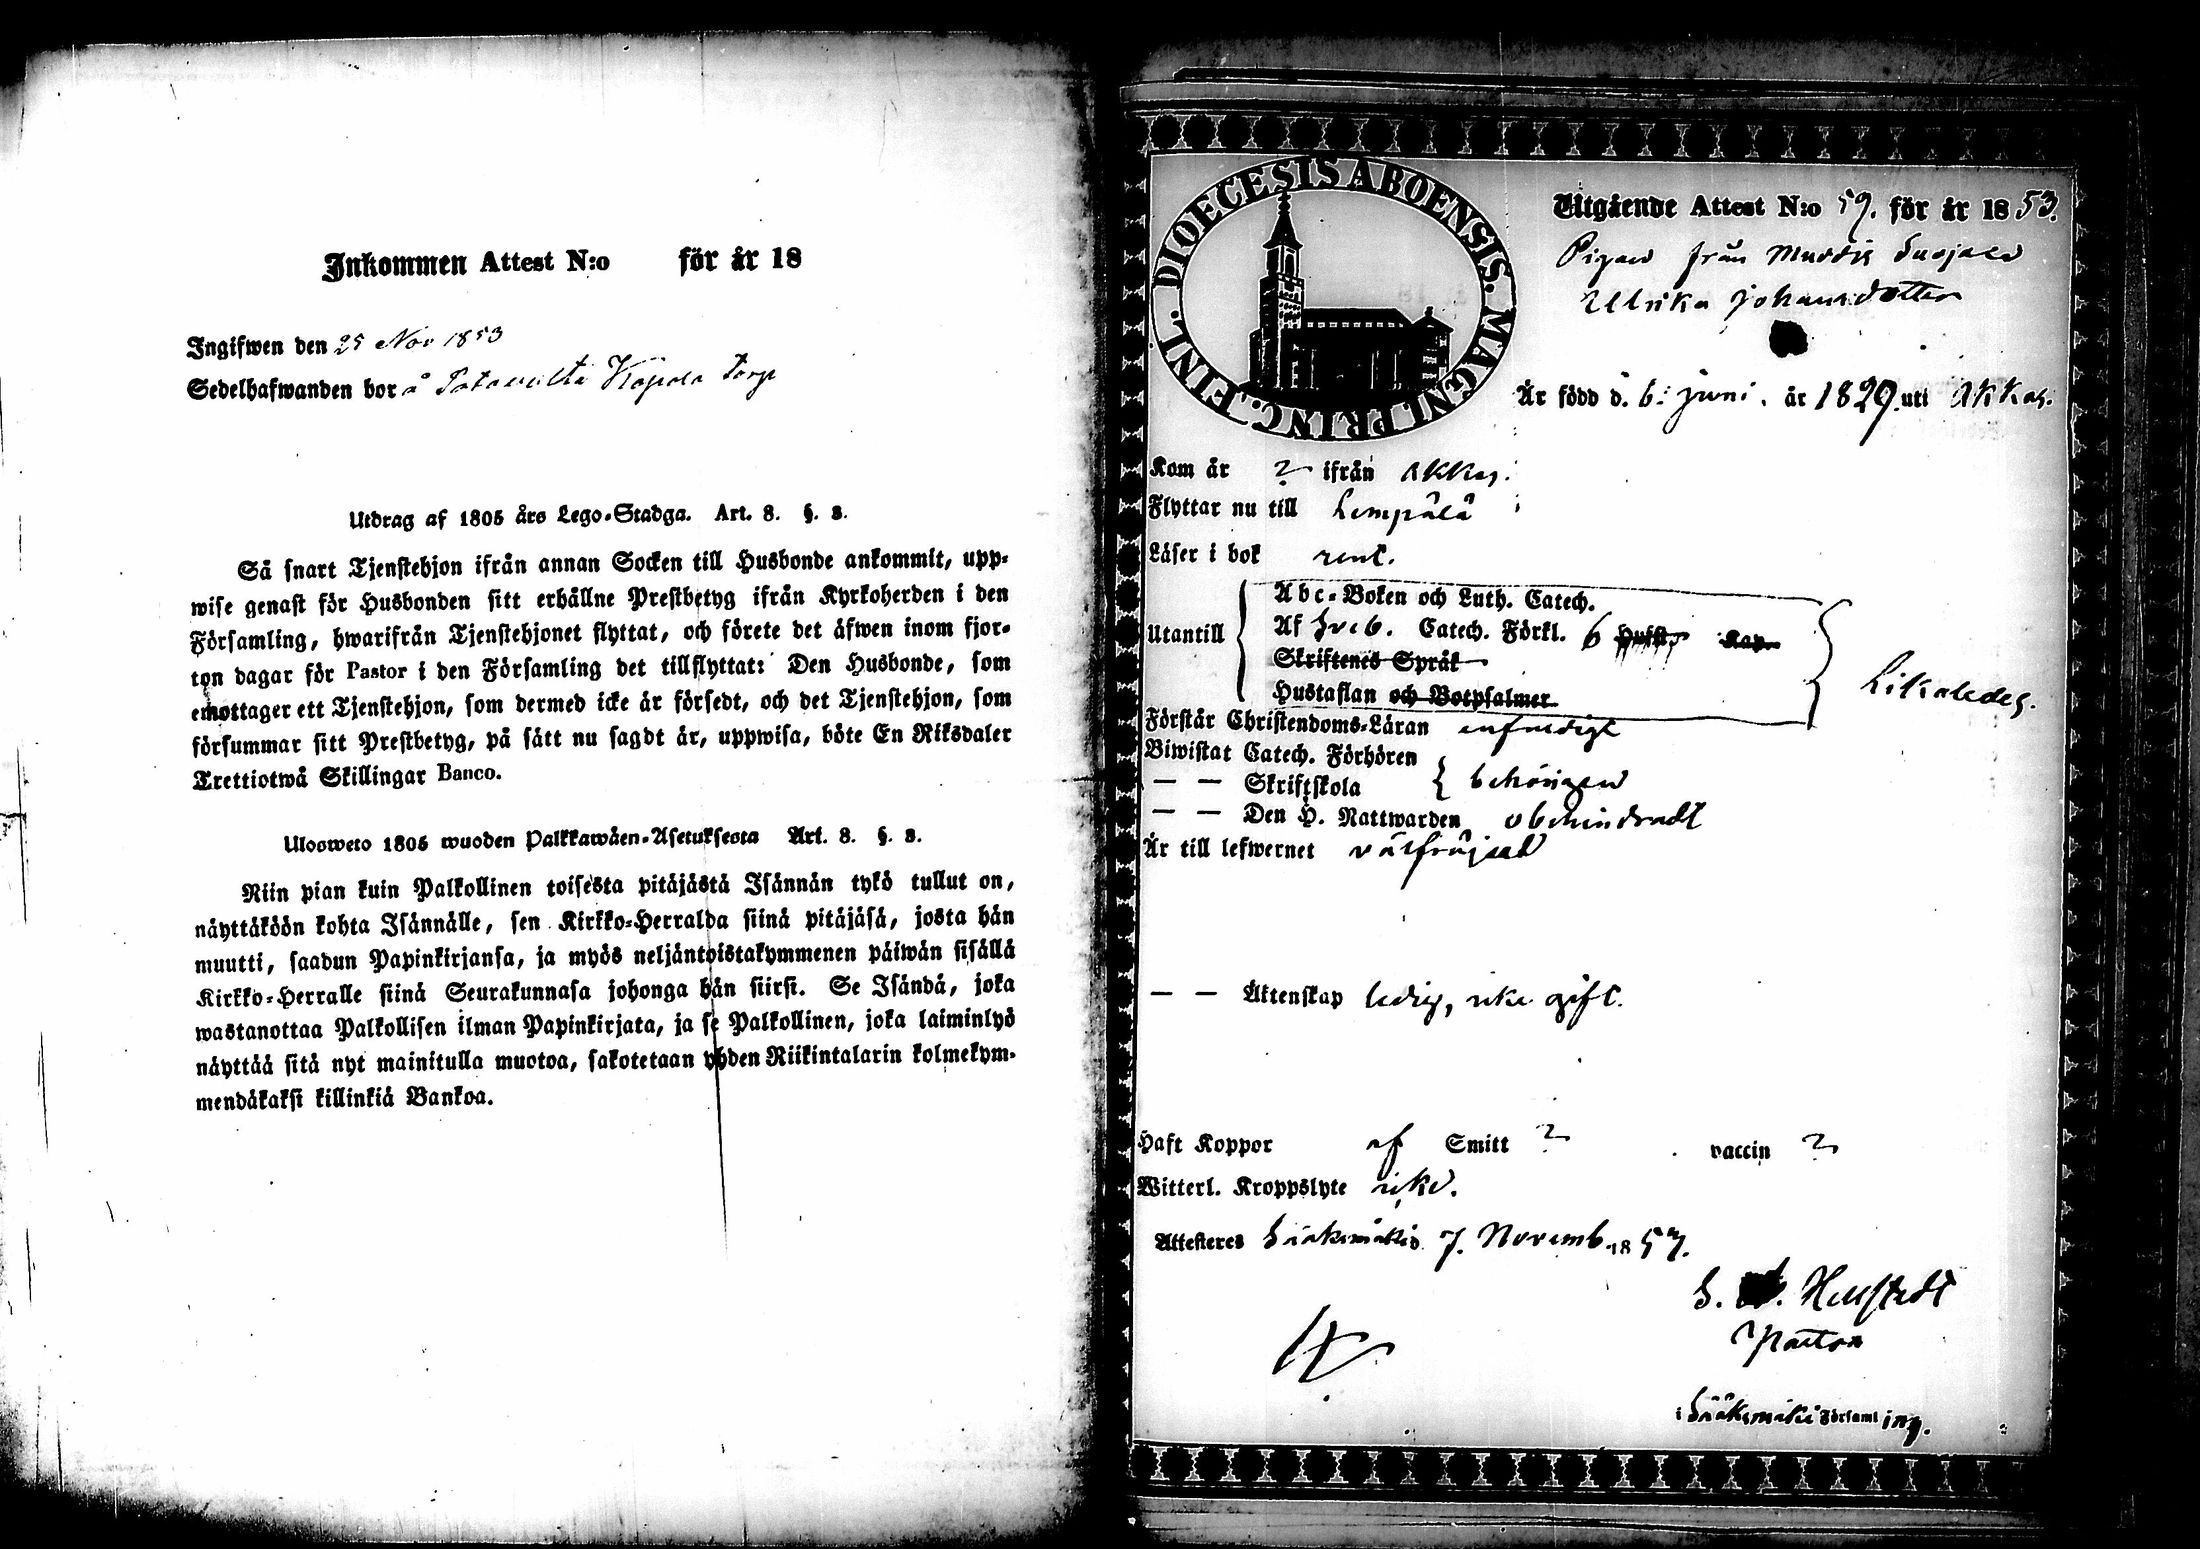 Inkommen Attest N:o för år 18
Ingifwen den 25 Nov 1853
Sedelhafwanden bor å Torp
Utdrag af 1805 års Lego-Stadga. Art. 8. §. 3.
Så snart Tjenstehjon ifrån annan Socken till Husbonde ankommit, upp-
wise genast för Husbonden sitt erhållne Prestbetyg ifrån Kyrkoherden i den
Församling, hwarifrån Tjenstehjonet flyttat, och förete det äfwen inom fjor-
ton dagar för Pastor i den Församling det tillflyttat: Den Husbonde, som
emottager ett Tjenstehjon, som dermed icke är försedt, och det Tjenstehjon, som
försummar sitt Prestbetyg, på sätt nu sagdt är, uppwisa, böte En Riksdaler
Trettiotwå Skillingar Banco.
Ulosweto 1805 wuoden Palkkawäen-Asetuksesta Art. 8. §. 3.
Niin pian kuin Palkollinen toisesta pitäjästä Isännän tykö tullut on,
näyttäköön kohta Isännälle, sen Kirkko-Herralda siinä pitäjäsä, josta hän
muutti, saadun Papinkirjansa, ja myös neljäntoistakymmenen päiwän sisällä
Kirkko-Herralle siinä Seurakunnasa johonga hän siirsi. Se Isändä, joka
wastanottaa Palkollisen ilman Papinkirjata, ja se Palkollinen, joka laiminlyö
näyttää sitä nyt mainitulla muotoa, sakotetaan yhden Riikintalarin kolmekym-
mendäkaksi killinkiä Bankoa.
DIOECESIS ABOENSIS. MAGNI. PRINC. FINL.
Utgående Attest N:o 59. för år 1853.
Pigan från
Ulrika Johansdotter
Är född d. 6 juni. år 1829. uti Akkas.
Kom år ? ifrån Akkas.
Flyttar nu till Lempälä
Läser i bok rent.
Utantill
Abc-Boken och Luth. Catech.
Af Sveb. Catech. Förkl. 6 Hufst. Kap.
Skriftenes Språk
Hustaflan och Botpsalmer
Likaledes.
Förstår Christendoms-Läran enfaldigt
Biwistat Catech. Förhören
— — Skriftskola behörigen
— — Den H. Nattwarden obehindradt
Är till lefwernet välfräjdad
— — Äktenskap ledig, icke gift.
Haft Koppor af Smitt ? vaccin ?
Witterl. Kroppslyte icke.
Attesteres Sääksmäki d. 7. Novemb. 1853.
Hellstedt
Pastor
i Sääksmäki Församling.